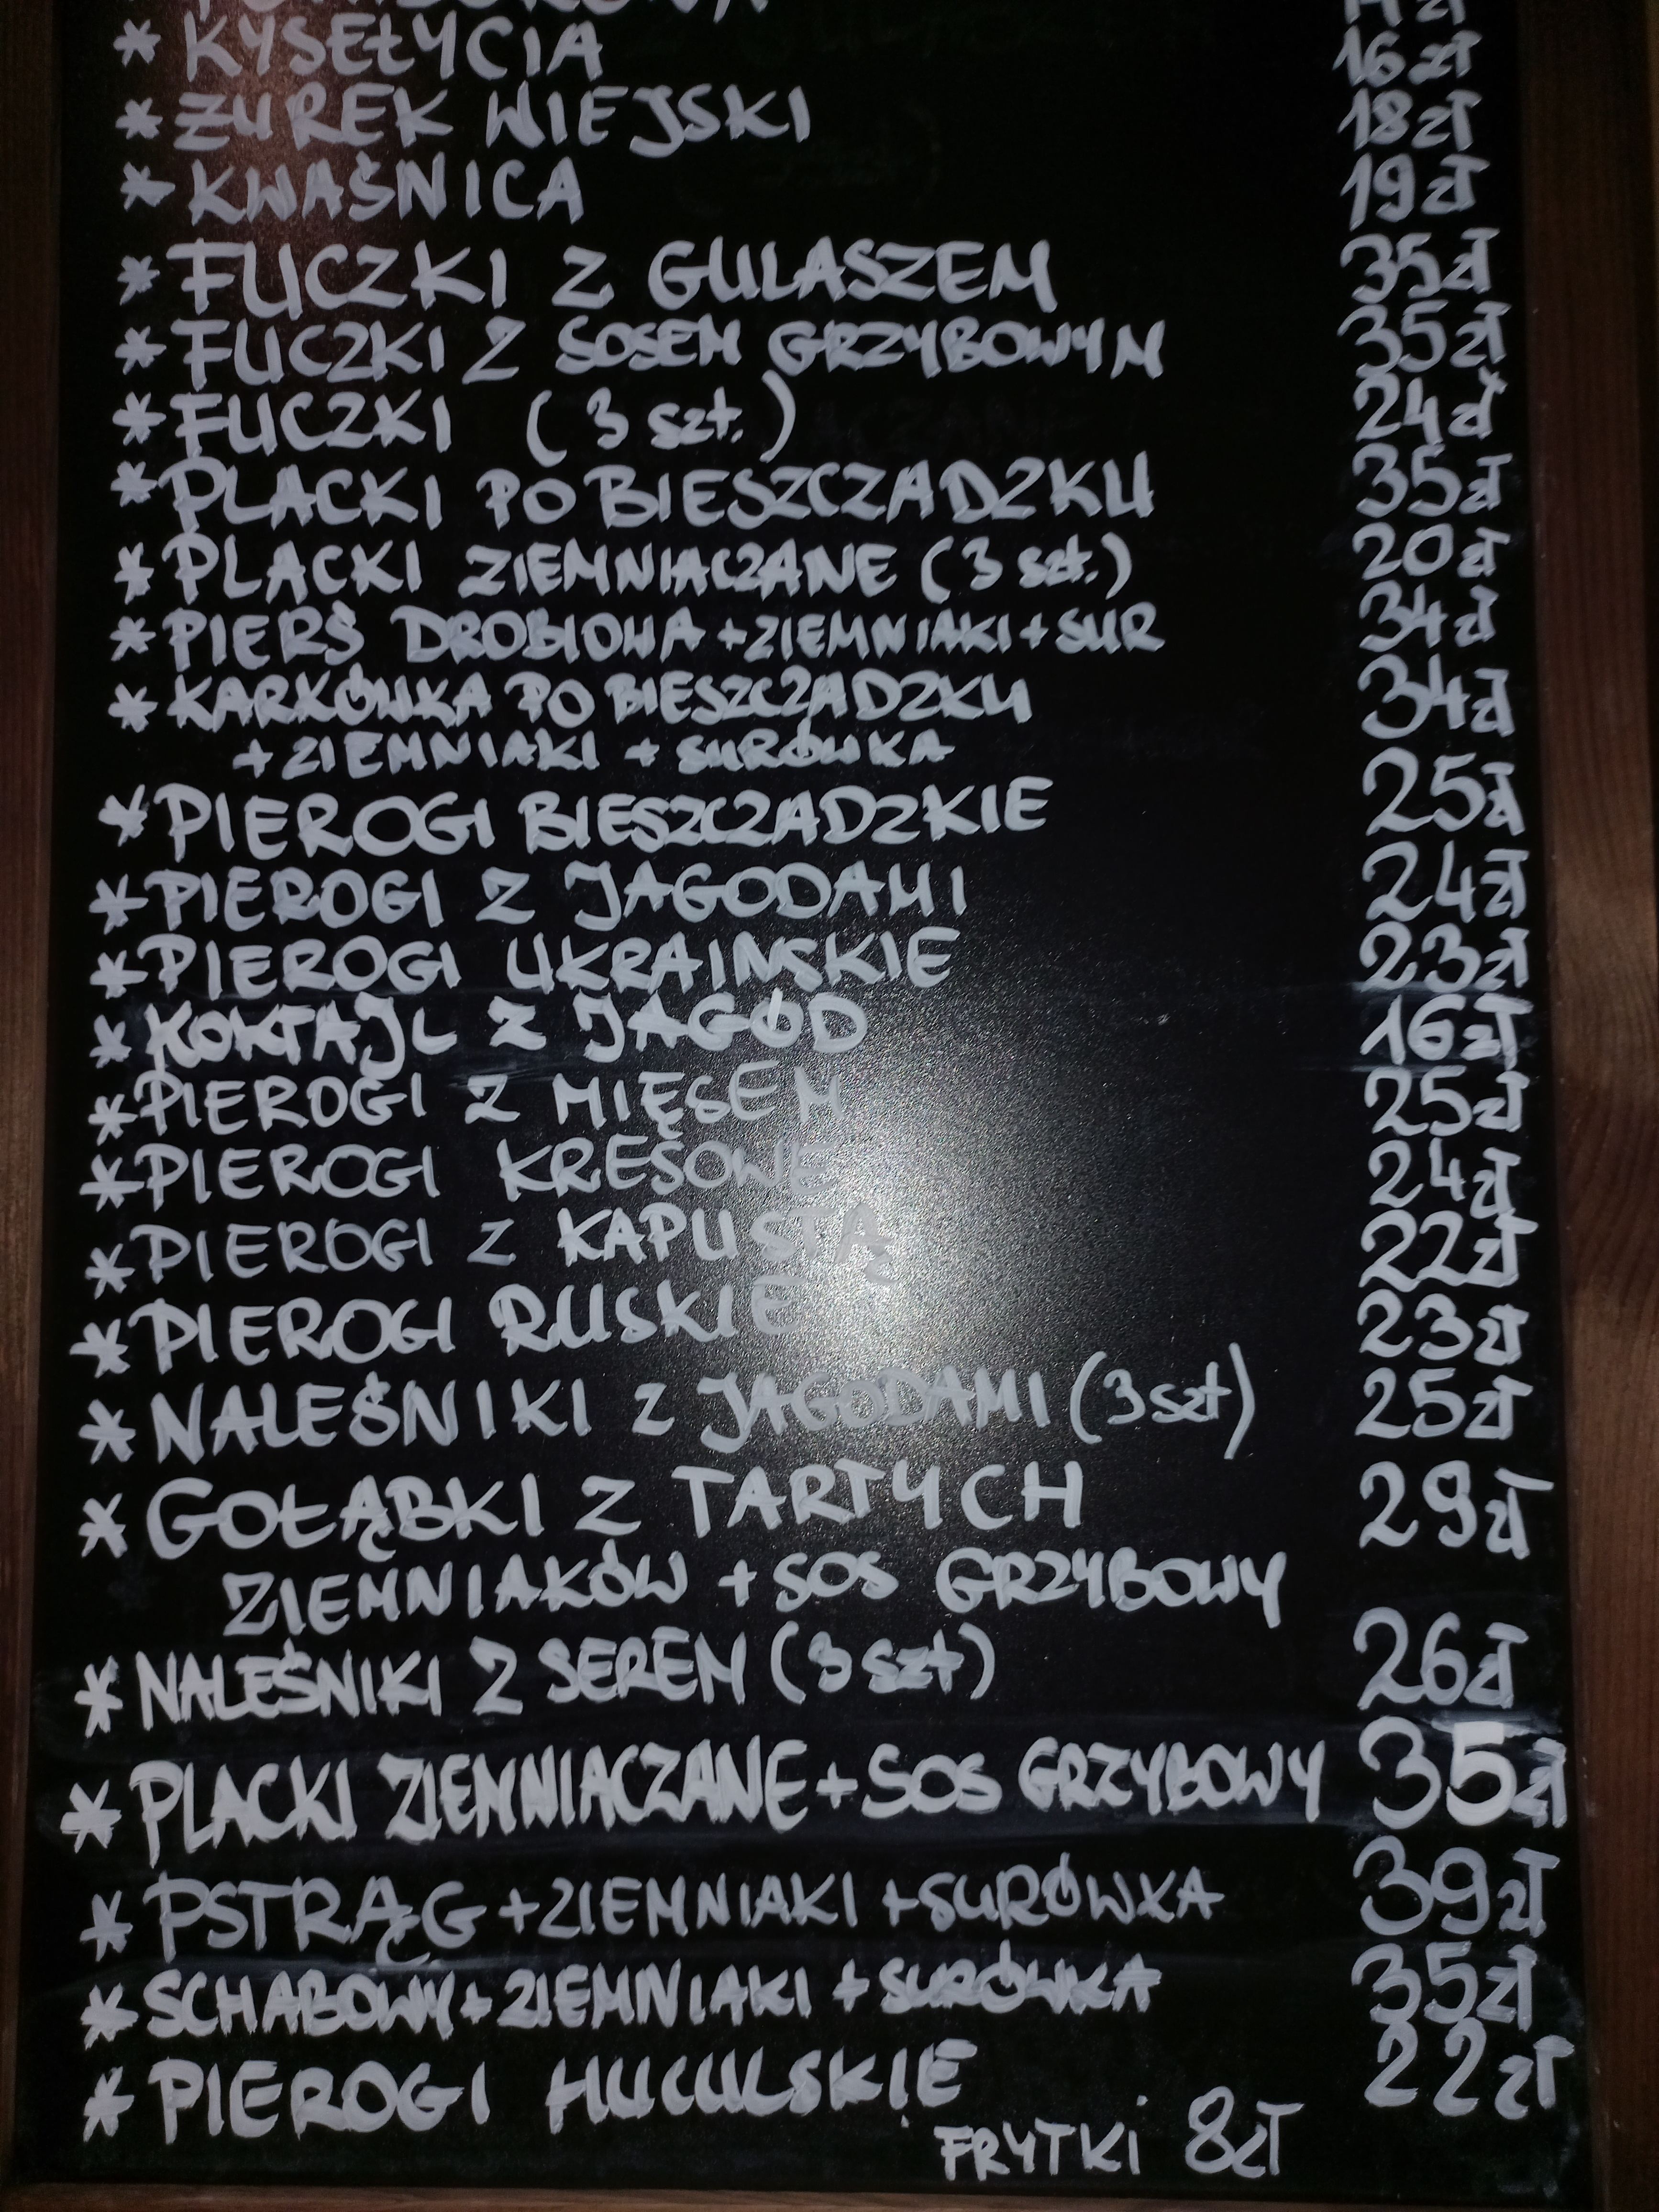 * KYSEŁYCIA 16 zł
* ŻUREK WIEJSKI 18 zł
* KWAŚNICA 19 zł
* FUCZKI Z GULASZEM 35 zł
* FUCZKI Z SOSEM GRZYBOWYM 35 zł
* FUCZKI (3 szt.) 24 zł
* PLACKI PO BIESZCZADZKU 35 zł
* PLACKI ZIEMNIACZANE (3 szt.) 20 zł
* PIERŚ DROBIOWA + ZIEMNIAKI + SUR 34 zł
* KARKÓWKA PO BIESZCZADZKU 34 zł
+ ZIEMNIAKI + SURÓWKA
* PIEROGI BIESZCZADZKIE 25 zł
* PIEROGI Z JAGODAMI 24 zł
* PIEROGI UKRAINSKIE 23 zł
* KOKTAJL Z JAGÓD 16 zł
* PIEROGI Z MIĘSEM 25 zł
* PIEROGI KRESOWE 24 zł
* PIEROGI Z KAPUSTĄ 22 zł
* PIEROGI RUSKIE 23 zł
* NALEŚNIKI Z JAGODAMI (3 szt) 25 zł
* GOŁĄBKI Z TARTYCH 29 zł
ZIEMNIAKÓW + SOS GRZYBOWY
* NALEŚNIKI Z SEREM (3 szt) 26 zł
* PLACKI ZIEMNIACZANE + SOS GRZYBOWY 35 zł
* PSTRĄG + ZIEMNIAKI + SURÓWKA 39 zł
* SCHABOWY + ZIEMNIAKI + SURÓWKA 35 zł
* PIEROGI HUCULSKIE 22 zł
FRYTKI 8 zł